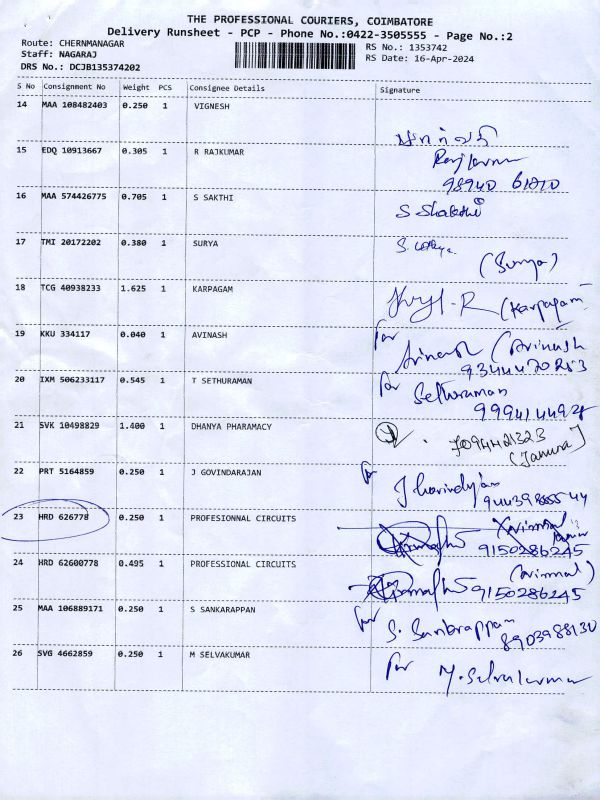 THE PROFESSIONAL COURIERS, COIMBATORE
Delivery Runsheet - PCP - Phone No.:0422-3505555 - Page No.:2
Route: CHERNMANAGAR
Staff: NAGARAJ
DRS No.: DCJB135374202
RS No.: 1353742
RS Date: 16-Apr-2024
S No Consignment No Weight PCS Consignee Details Signature
14 MAA 108482403 0.250 1 VIGNESH
15 EDQ 10913667 0.305 1 R RAJKUMAR
Rajkumar
16 MAA 574426775 0.705 1 S SAKTHI
S Shakthi
17 TMI 20172202 0.380 1 SURYA
(Surya)
18 TCG 40938233 1.625 1 KARPAGAM
(Karpagam)
19 KKU 334117 0.040 1 AVINASH
for Avinash (Avinash
9344470253
20 IXM 506233117 0.545 1 T SETHURAMAN
for Sethuraman
21 SVK 10498829 1.400 1 DHANYA PHARAMACY
7094421323
(Jamuna)
22 PRT 5164859 0.250 1 J GOVINDARAJAN
for
23 HRD 626778 0.250 1 PROFESIONNAL CIRCUITS
9150286245
24 HRD 62600778 0.495 1 PROFESSIONAL CIRCUITS
9150286245
25 MAA 106889171 0.250 1 S SANKARAPPAN
for S. Sankarappan
8903988130
26 SVG 4662859 0.250 1 M SELVAKUMAR
for M. Selvakumar